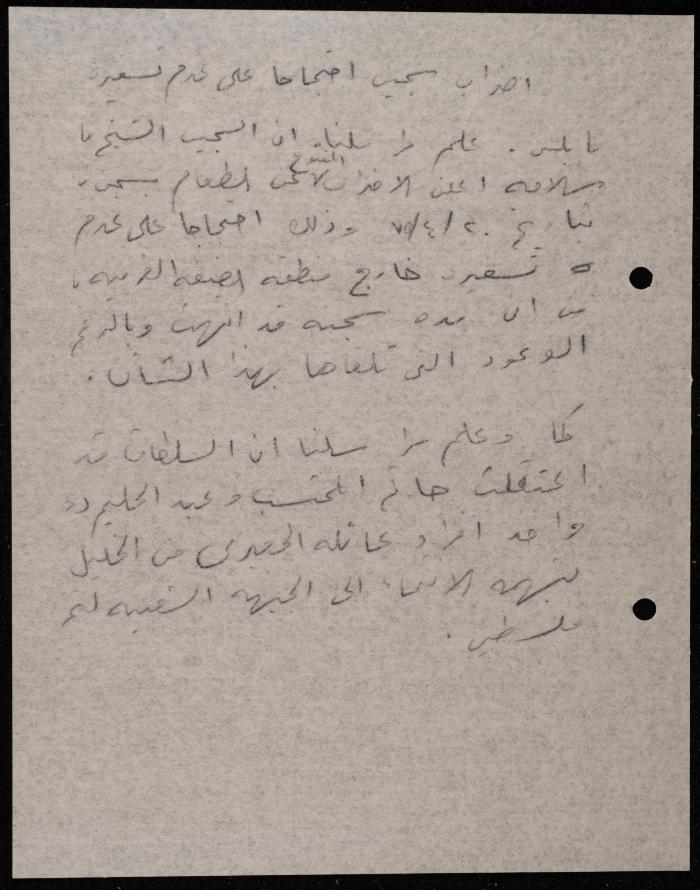 اضراب سجين احتجاجا على عدم تسفيره
نابلس . علم مراسلنا ان السجين الشيخ
سلامه اعلن الاضراب المفتوح عن الطعام بسجن
بتاريخ ٢٠/٤/٧٥ وذلك احتجاجا على عدم
تسفيره خارج منطقة الضفة الغربيه
من ان مده سجنه قد انتهت وبالرغم
الوعود التي تلقاها بهذا الشأن .
كما وعلم مراسلنا ان السلطات قد
اعتقلت حاتم المحتسب وعبد الحليم
واحد افراد عائله الجعبري من الخليل
بتهمه الانتماء الى الجبهه الشعبيه لتحر
فلسطين .